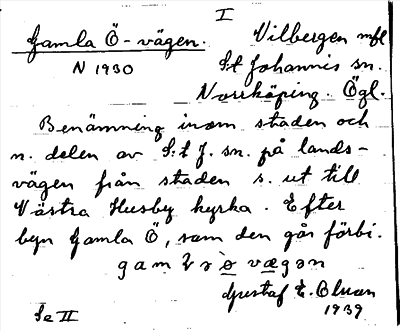 I
Gamla Ö-vägen. Vilbergen mfl
N 1930 S:t Johannis sn.
Norrköping. Ögl.
Benämning inom staden och
n. delen av S:t J. sn. på lands-
vägen från staden s. ut till
Västra Husby kyrka. Efter
byn Gamla Ö, som den går förbi.
vægən
Gustaf E. Bluan
1939
Se II